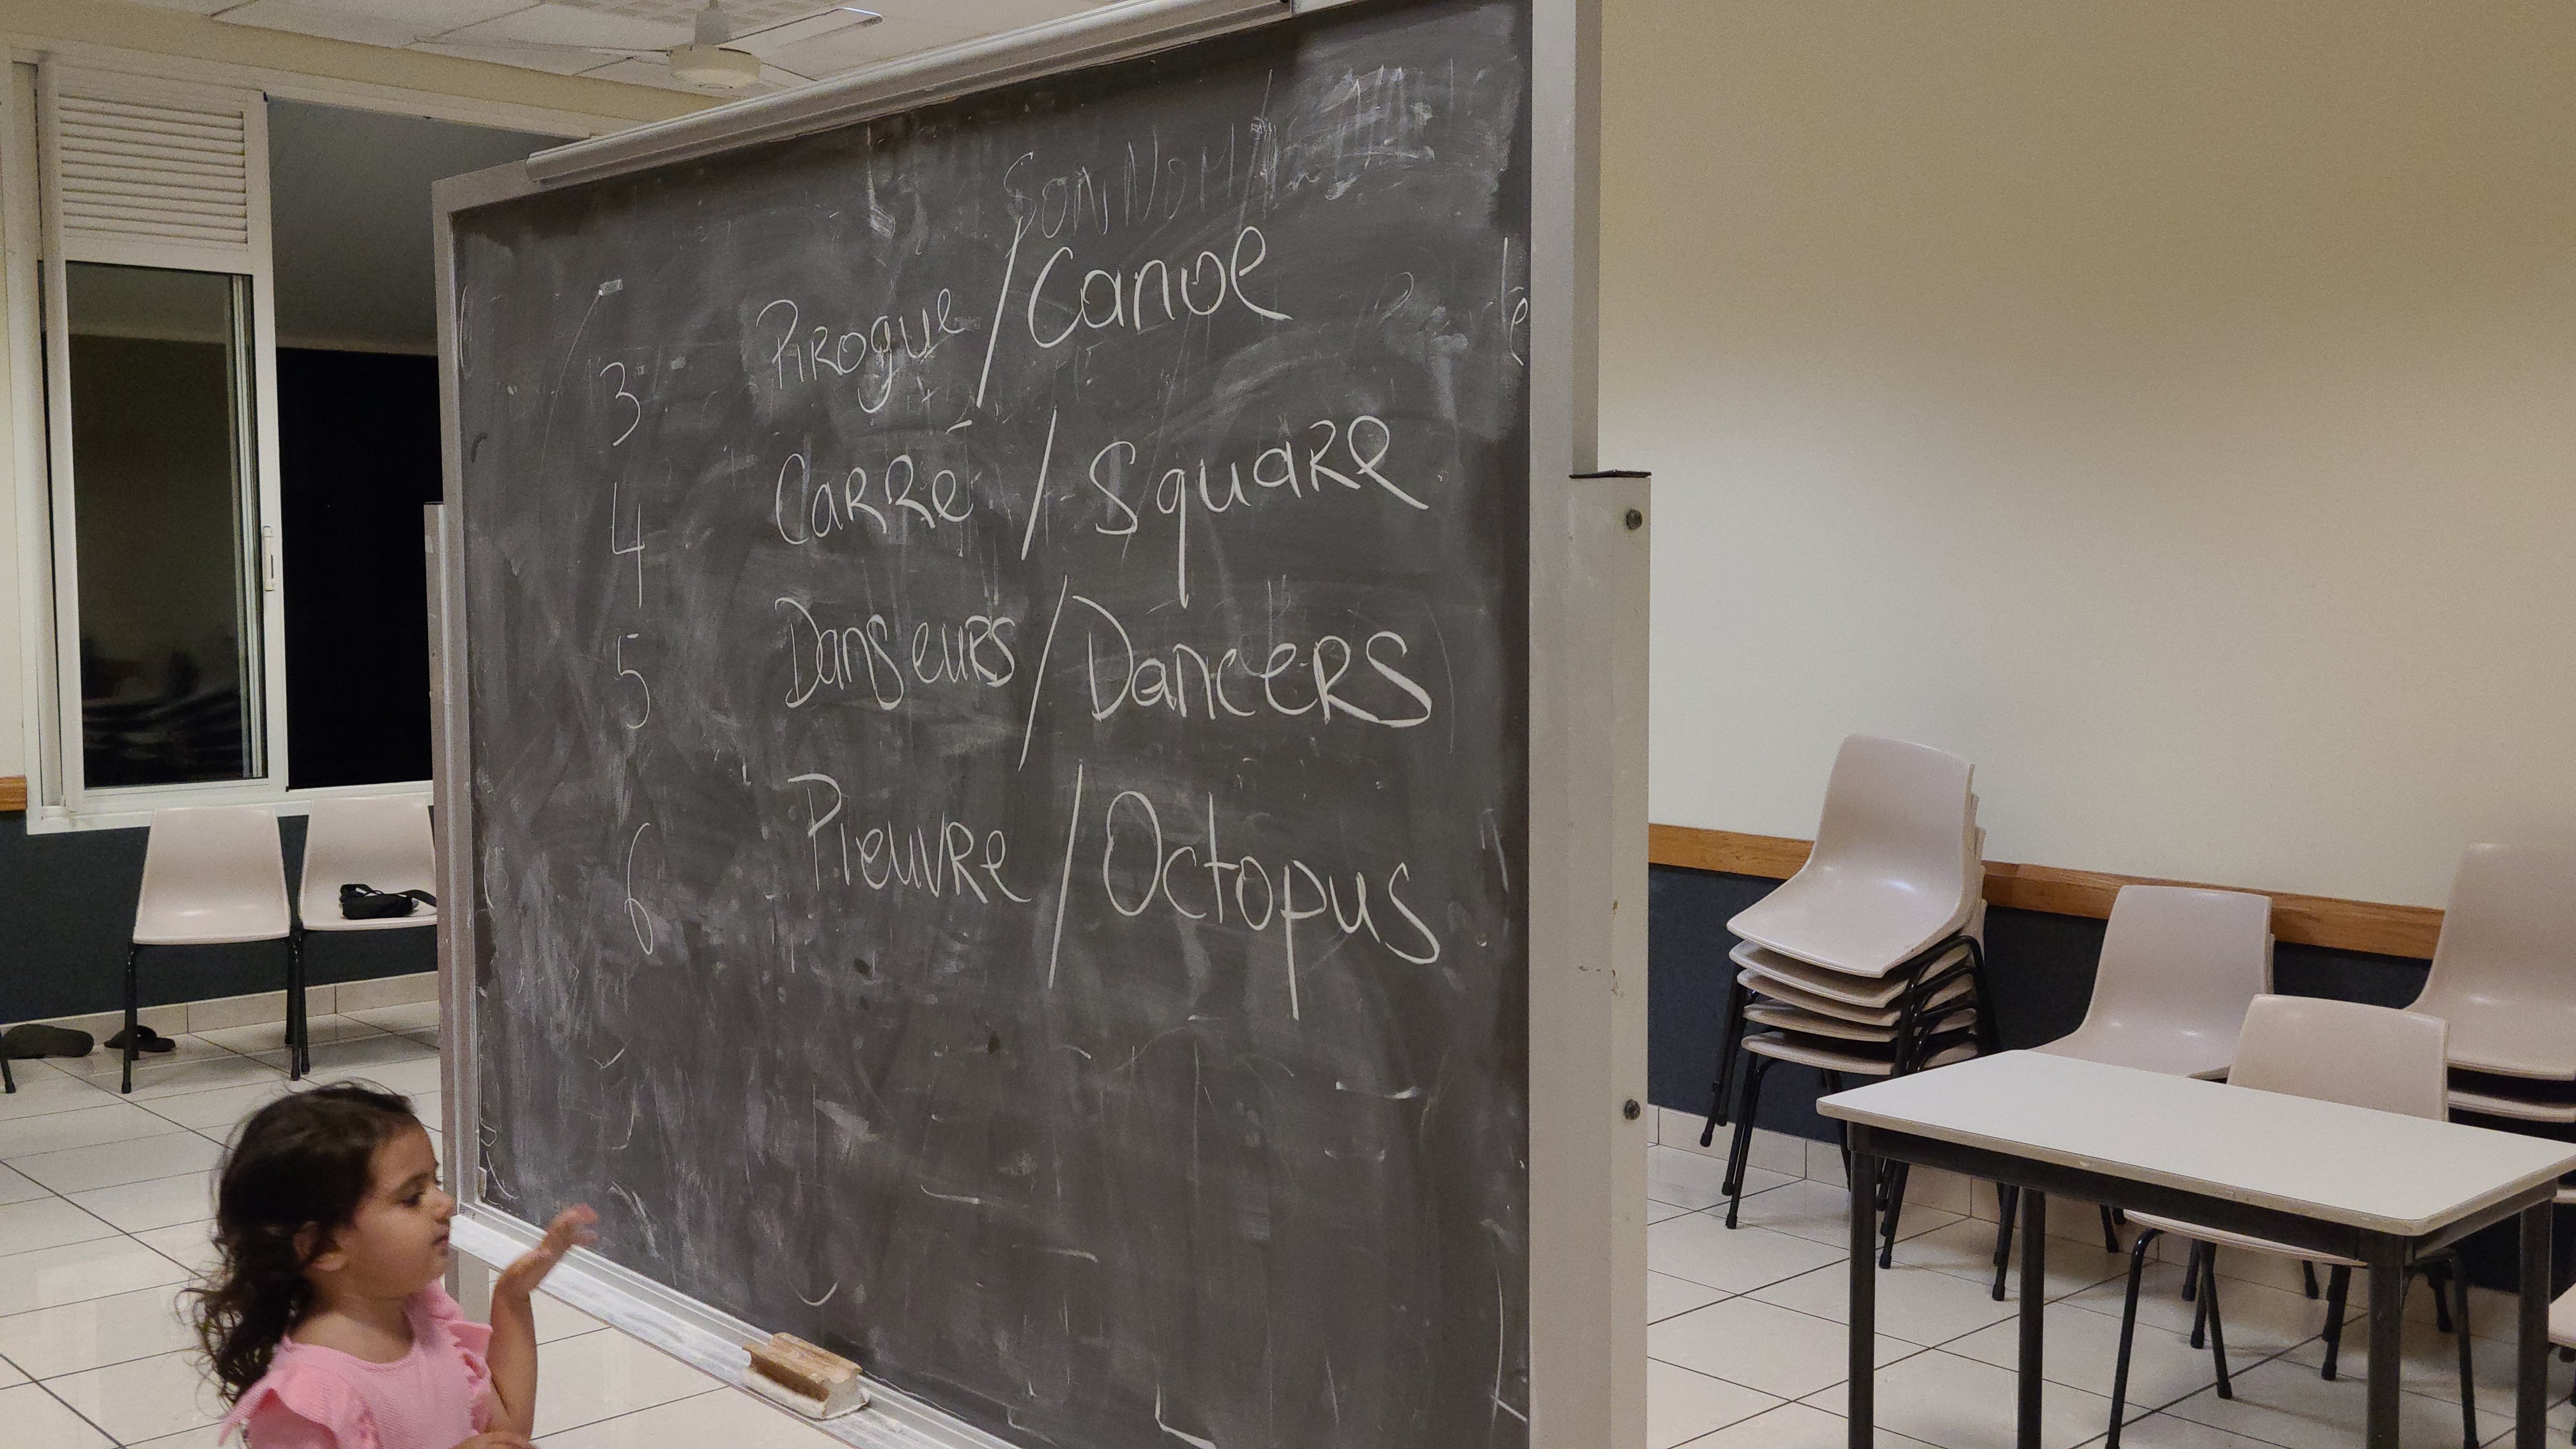 SON NOM
3 Pirogue / Canoe
4 Carré / Square
5 Danseurs / Dancers
6 Pieuvre / Octopus